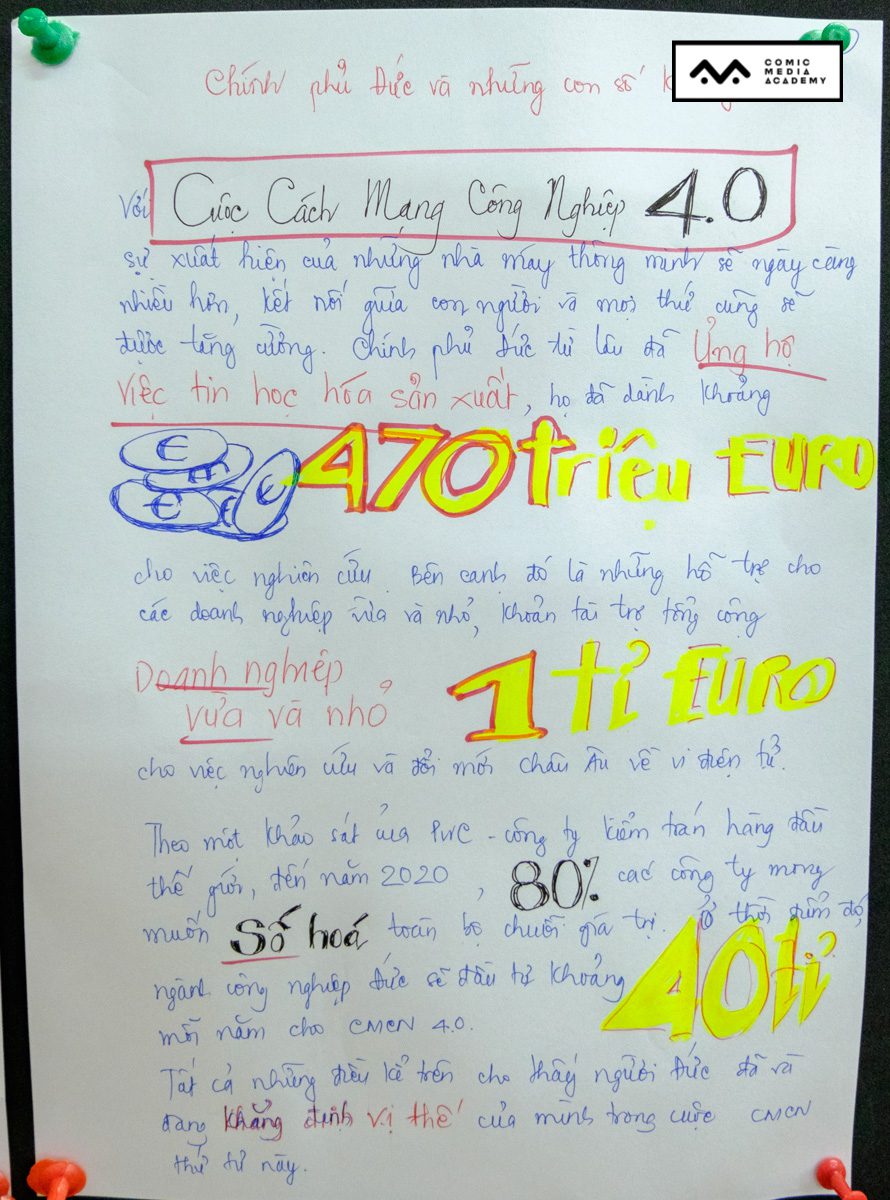 COMIC
MEDIA
ACADEMY
Chính phủ Đức và những con số
Với Cuộc Cách Mạng Công Nghiệp 4.0
sự xuất hiện của những nhà máy thông minh sẽ ngày càng
nhiều hơn, kết nối giữa con người và mọi thứ cũng sẽ
được tăng cường. Chính phủ Đức từ lâu đã ủng hộ
việc tin học hóa sản xuất, họ đã dành khoảng
470 triệu EURO
cho việc nghiên cứu. Bên cạnh đó là những hỗ trợ cho
các doanh nghiệp vừa và nhỏ, khoản tài trợ tổng cộng
Doanh nghiệp
vừa và nhỏ
1 tỉ EURO
cho việc nghiên cứu và đổi mới châu Âu về vi điện tử.
Theo một khảo sát của PWC - công ty kiểm toán hàng đầu
thế giới, đến năm 2020, 80% các công ty mong
muốn số hoá toàn bộ chuỗi giá trị. Ở thời điểm đó,
ngành công nghiệp Đức sẽ đầu tư khoảng 40 tỉ
mỗi năm cho CMCN 4.0.
Tất cả những điều kể trên cho thấy người Đức đã và
đang khẳng định vị thế của mình trong cuộc CMCN
thứ tư này.